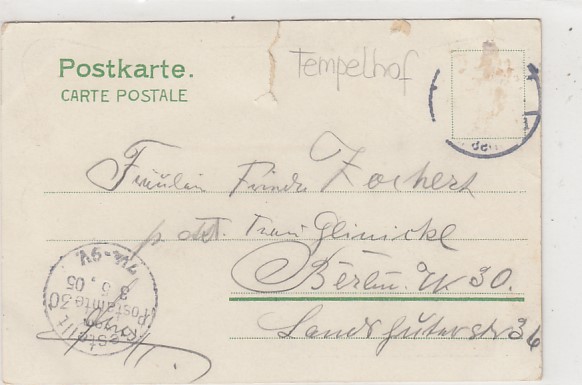 Postkarte.
CARTE POSTALE
Tempelhof
Fräulein Frieda Zochert
p. adr. Frau Glinicke
Berlin. W 30.
Landshuterstr 36
7¼-9V.
3.5.05
Postamte 30